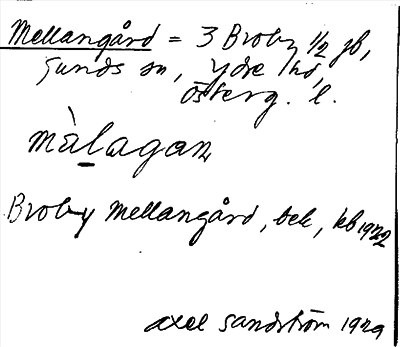 Mellangård = 3 Broby 1/2 gb,
Sunds sn, Ydre hd,
Österg. l.
màlagan
Broby Mellangård, bek, kb 1922
Axel Sandström 1929